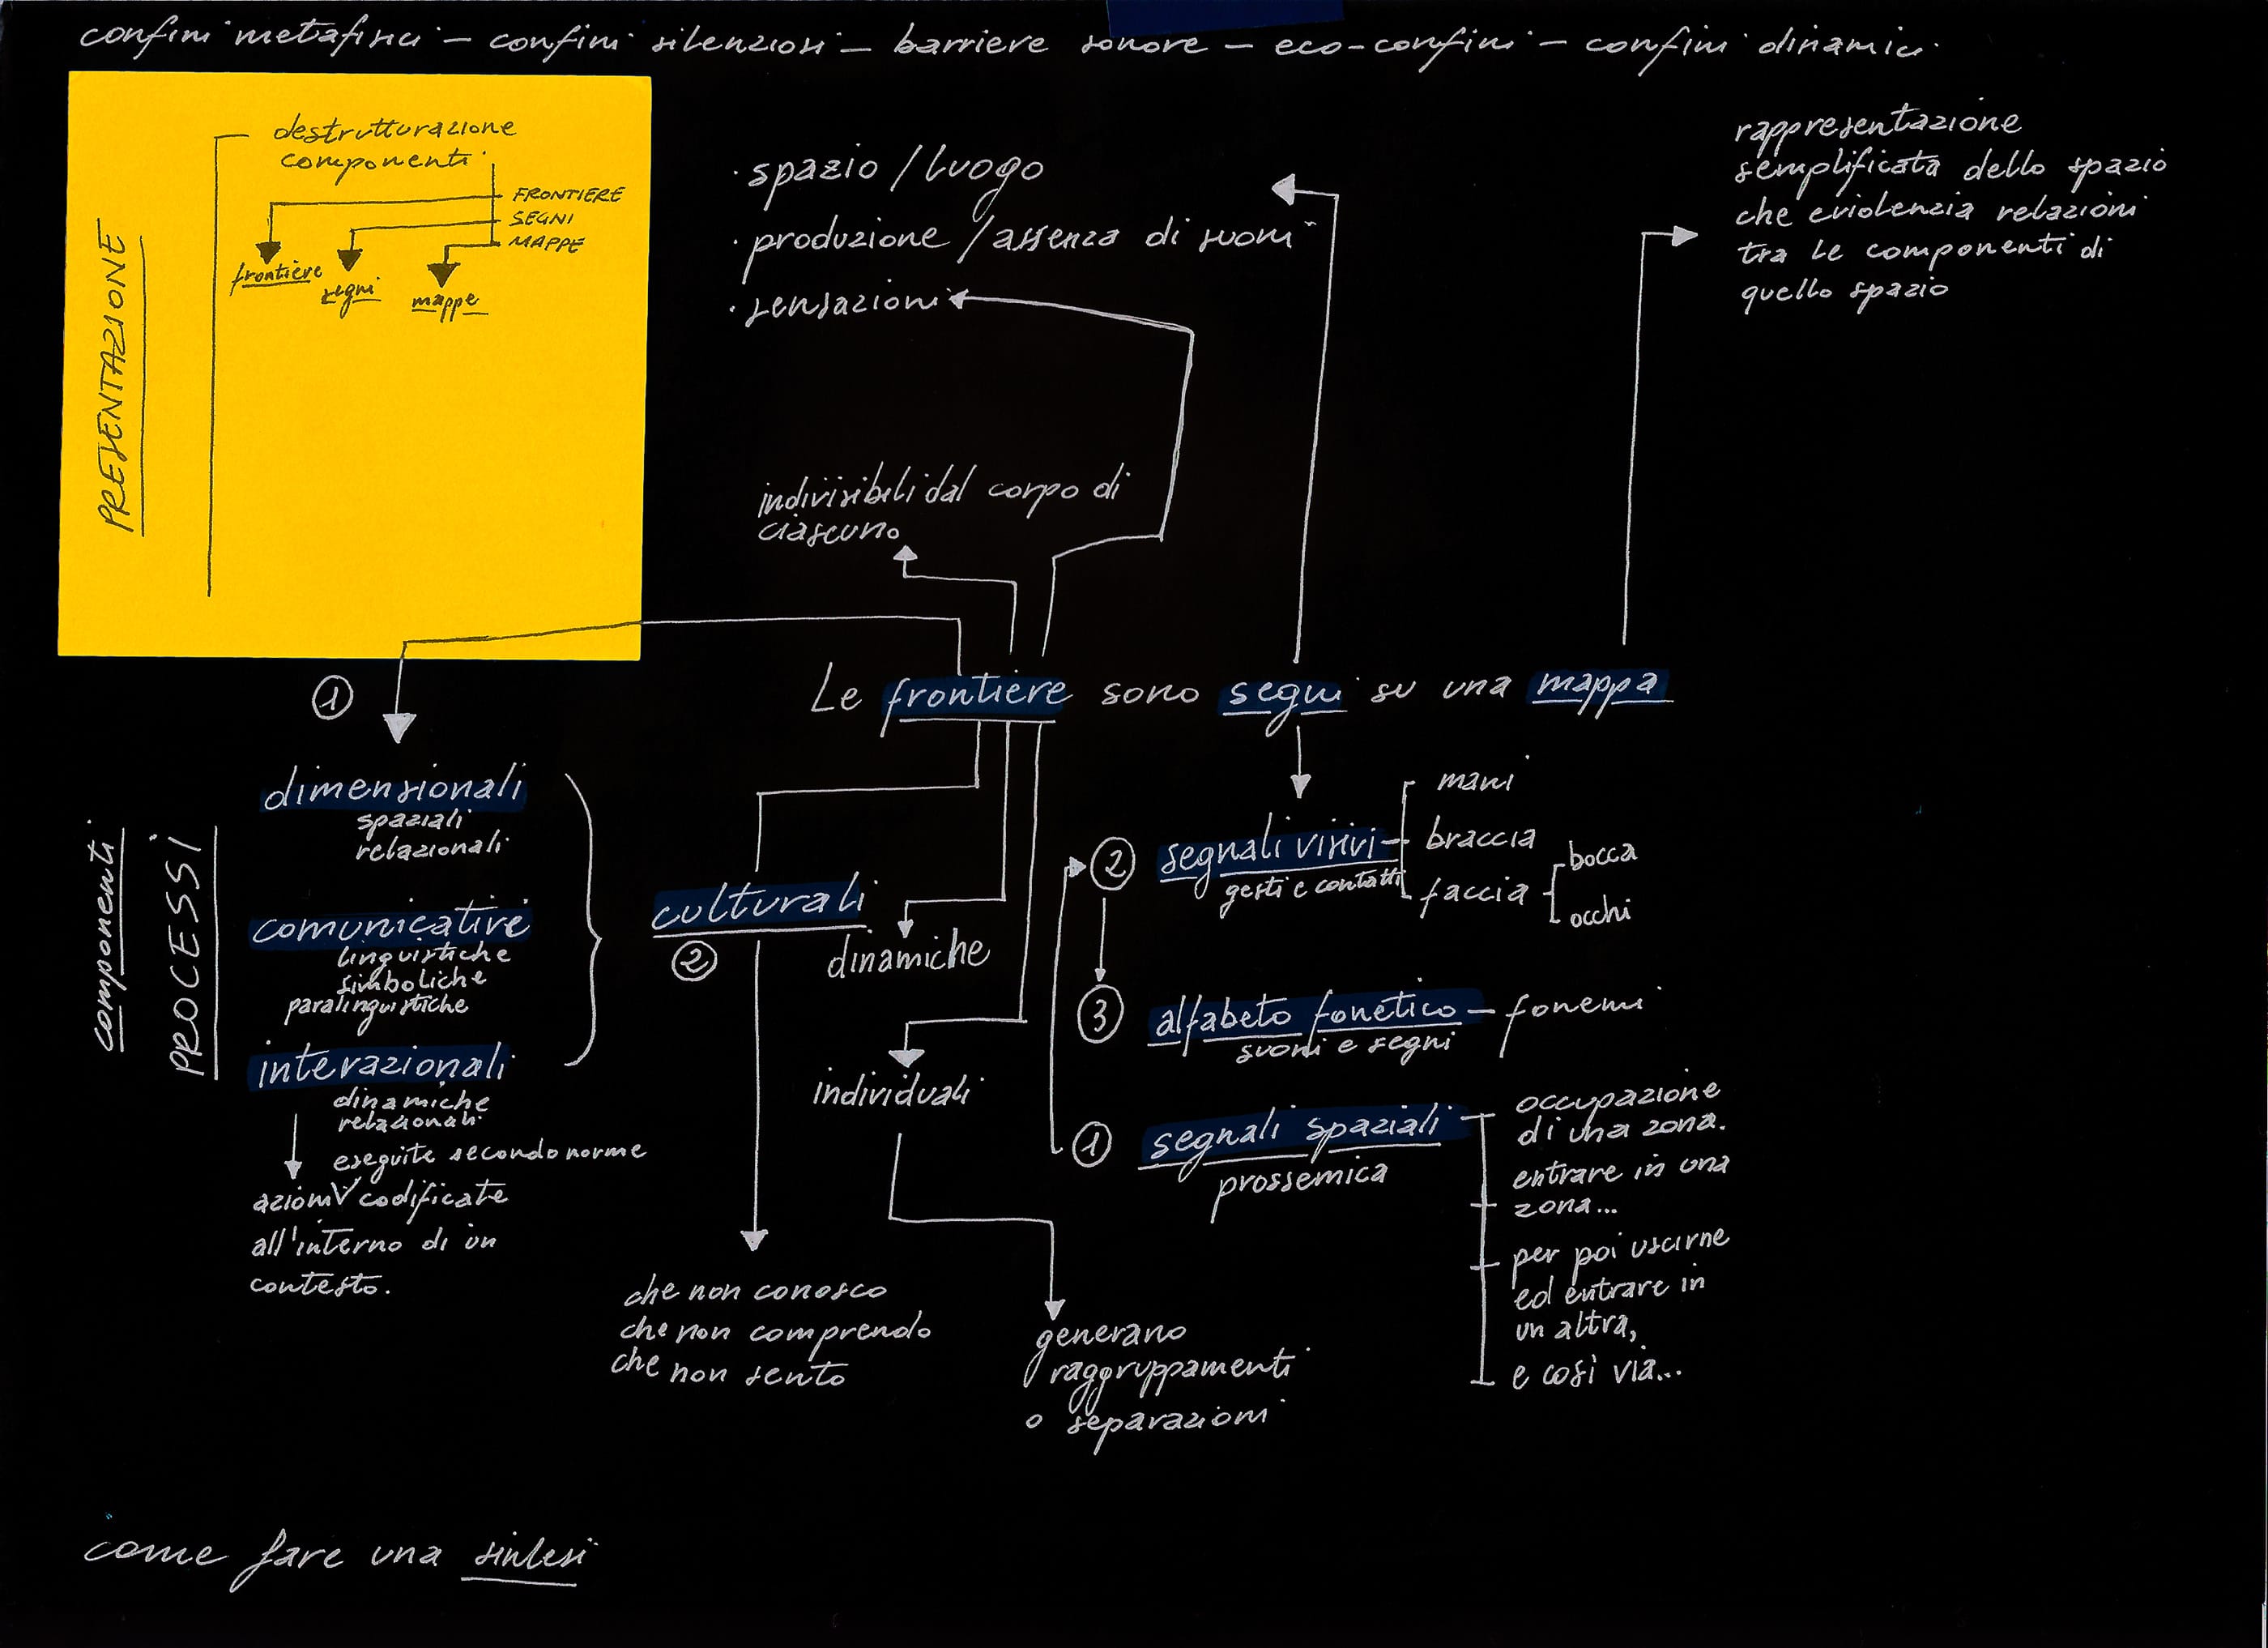 confini metafisici – confini silenziosi – barriere sonore – eco-confini – confini dinamici
PRESENTAZIONE
destrutturazione
componenti
FRONTIERE
SEGNI
MAPPE
frontiere
segni
mappe
· spazio / luogo
· produzione / assenza di suoni
· sensazioni
rappresentazione
semplificata dello spazio
che evidenzia relazioni
tra le componenti di
quello spazio
indivisibili dal corpo di
ciascuno
Le frontiere sono segni su una mappa
1
componenti
PROCESSI
dimensionali
spaziali
relazionali
comunicative
linguistiche
simboliche
paralinguistiche
interazionali
dinamiche
relazionali
eseguite secondo norme
azioni codificate
all'interno di un
contesto.
culturali
2
dinamiche
individuali
che non conosco
che non comprendo
che non sento
generano
raggruppamenti
o separazioni
2
segnali visivi
gesti e contatti
mani
braccia
faccia
bocca
occhi
3
alfabeto fonetico – fonemi
suoni e segni
1
segnali spaziali
prossemica
occupazione
di una zona.
entrare in una
zona...
per poi uscirne
ed entrare in
un altra,
e così via...
come fare una sintesi